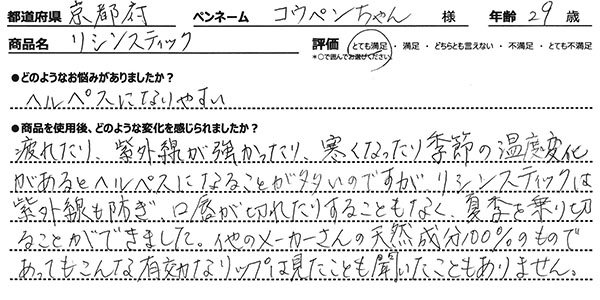 都道府県 京都府 ペンネーム コウペンちゃん 様 年齢 29 歳
商品名 リシンスティック 評価 とても満足 ・ 満足 ・ どちらとも言えない ・ 不満足 ・ とても不満足
*○で囲んでお選びください。
●どのようなお悩みがありましたか?
ヘルペスになりやすい
●商品を使用後、どのような変化を感じられましたか?
疲れたり、紫外線が強かったり、寒くなったり季節の温度変化
があるとヘルペスになることが多いのですが リシンスティックは
紫外線も防ぎ 口唇が切れたりすることもなく、夏季を乗り切
ることができました。他のメーカーさんの天然成分100%のもので
あってもこんな有効なリップは見たことも聞いたこともありません。